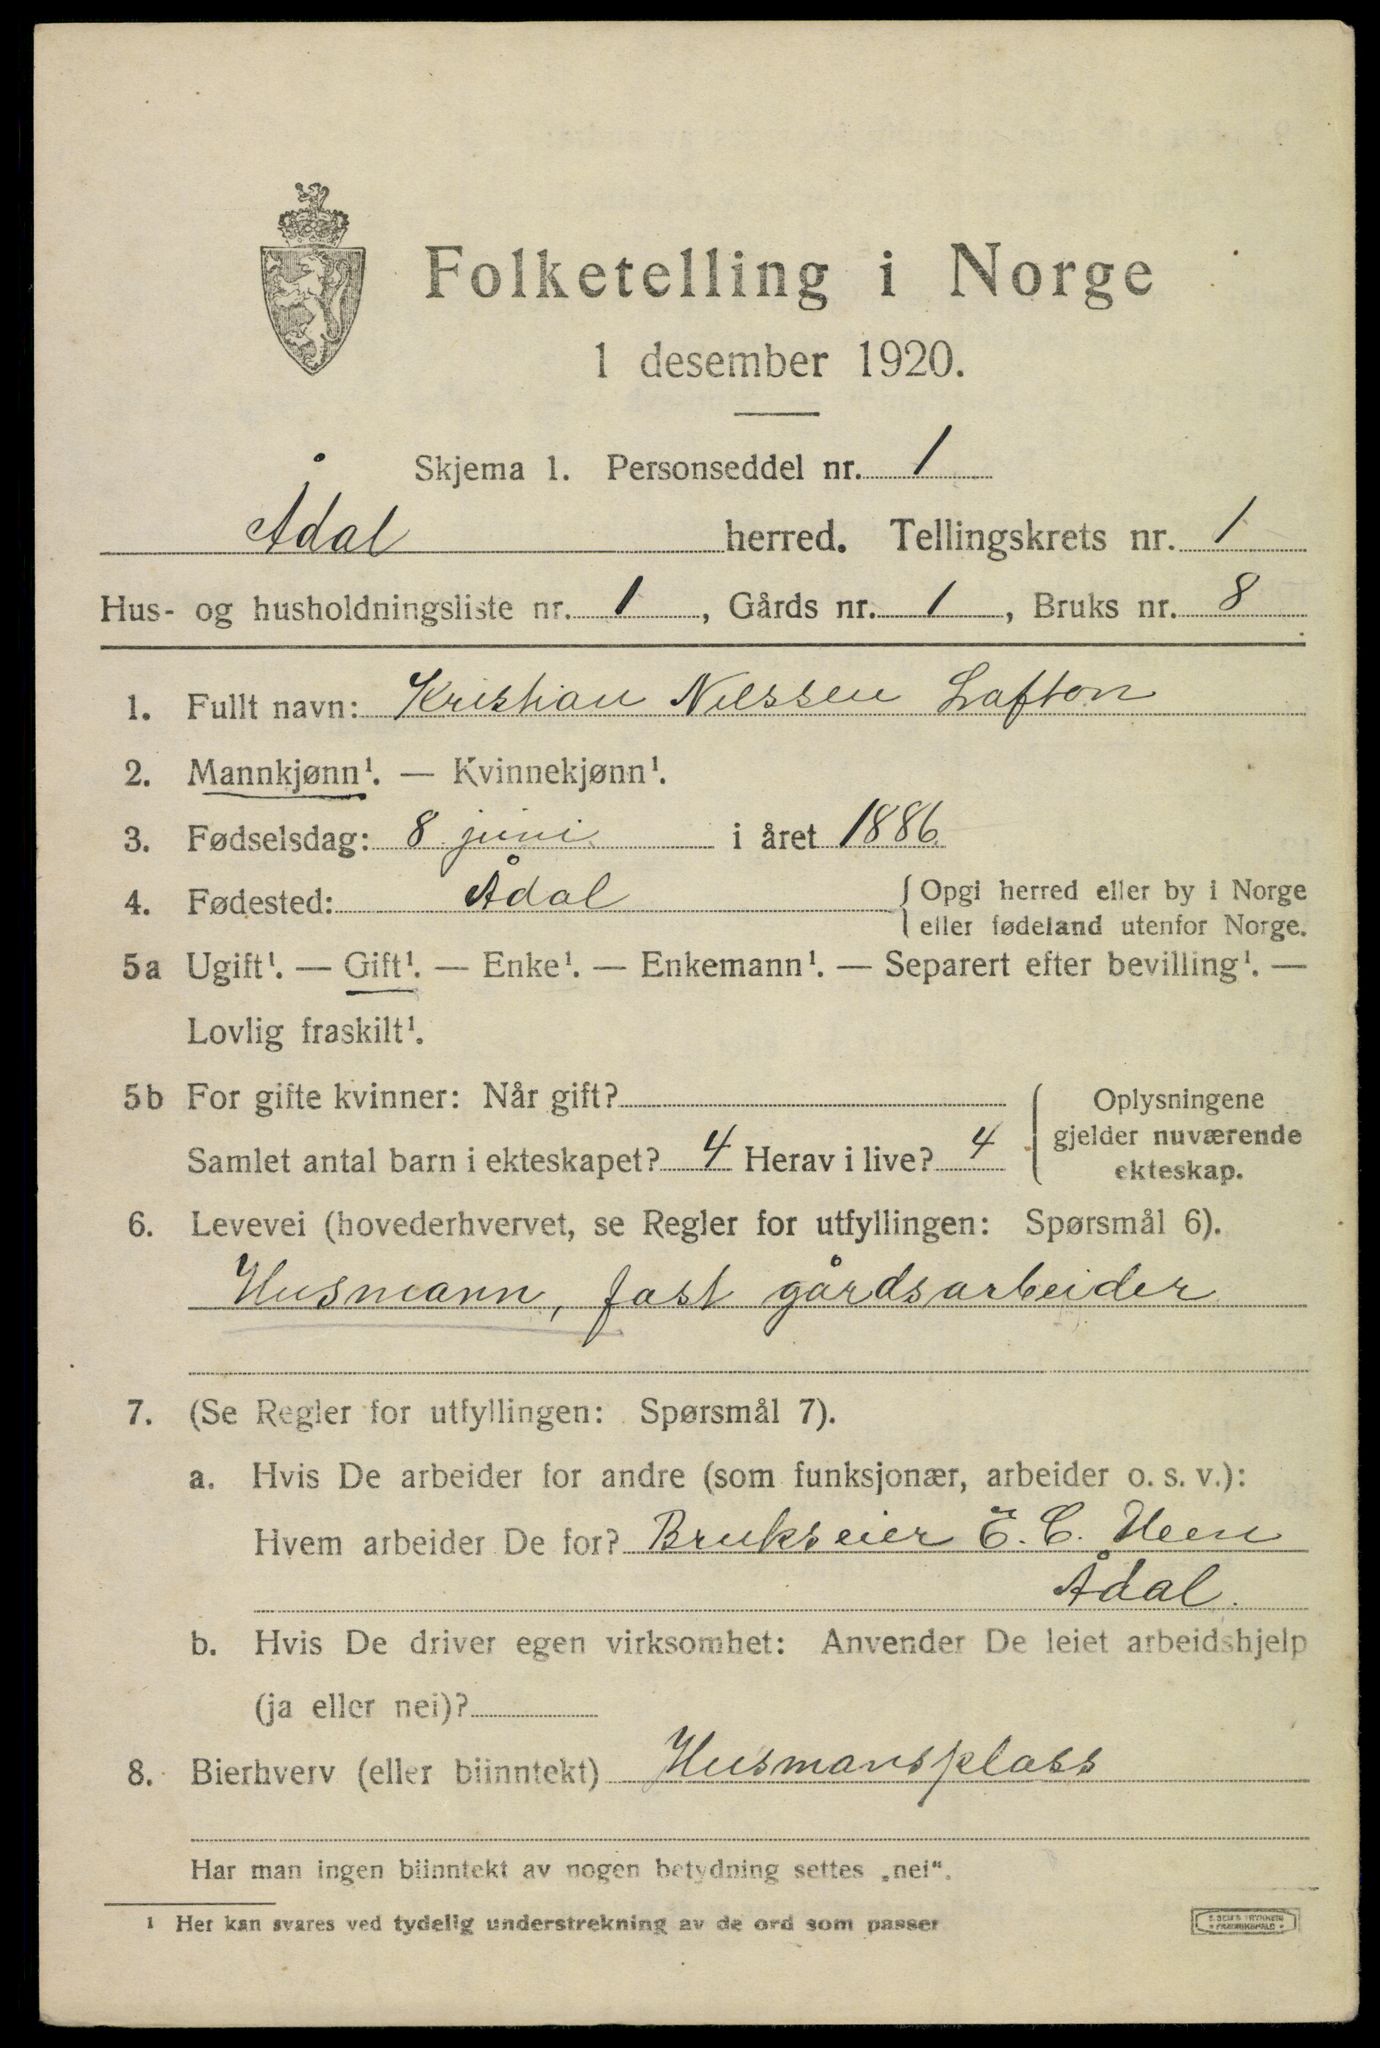 Folketelling i Norge
1 desember 1920.
Skjema 1. Personseddel nr. 1
Ådal herred. Tellingskrets nr. 1
Hus- og husholdningsliste nr. 1, Gårds nr. 1, Bruks nr. 8
1. Fullt navn: Kristian Nilssen Lafton
2. Mannkjønn¹. — Kvinnekjønn¹.
3. Fødselsdag: 8 juni i året 1886.
4. Fødested: Ådal { Opgi herred eller by i Norge
eller fødeland utenfor Norge.
5a Ugift¹. — Gift¹. — Enke¹. — Enkemann¹. — Separert efter bevilling¹. —
Lovlig fraskilt¹.
5b For gifte kvinner: Når gift?
Samlet antal barn i ekteskapet? 4 Herav i live? 4
Oplysningene
gjelder nuværende
ekteskap.
6. Levevei (hovederhvervet, se Regler for utfyllingen: Spørsmål 6).
Husmann, fast gårdsarbeider
7. (Se Regler for utfyllingen: Spørsmål 7).
a. Hvis De arbeider for andre (som funksjonær, arbeider o. s. v.):
Hvem arbeider De for? Brukseier E. C. Heen
Ådal.
b. Hvis De driver egen virksomhet: Anvender De leiet arbeidshjelp
(ja eller nei)?
8. Bierhverv (eller biinntekt) Husmansplass
Har man ingen biinntekt av nogen betydning settes „nei“.
¹ Her kan svares ved tydelig understrekning av de ord som passer